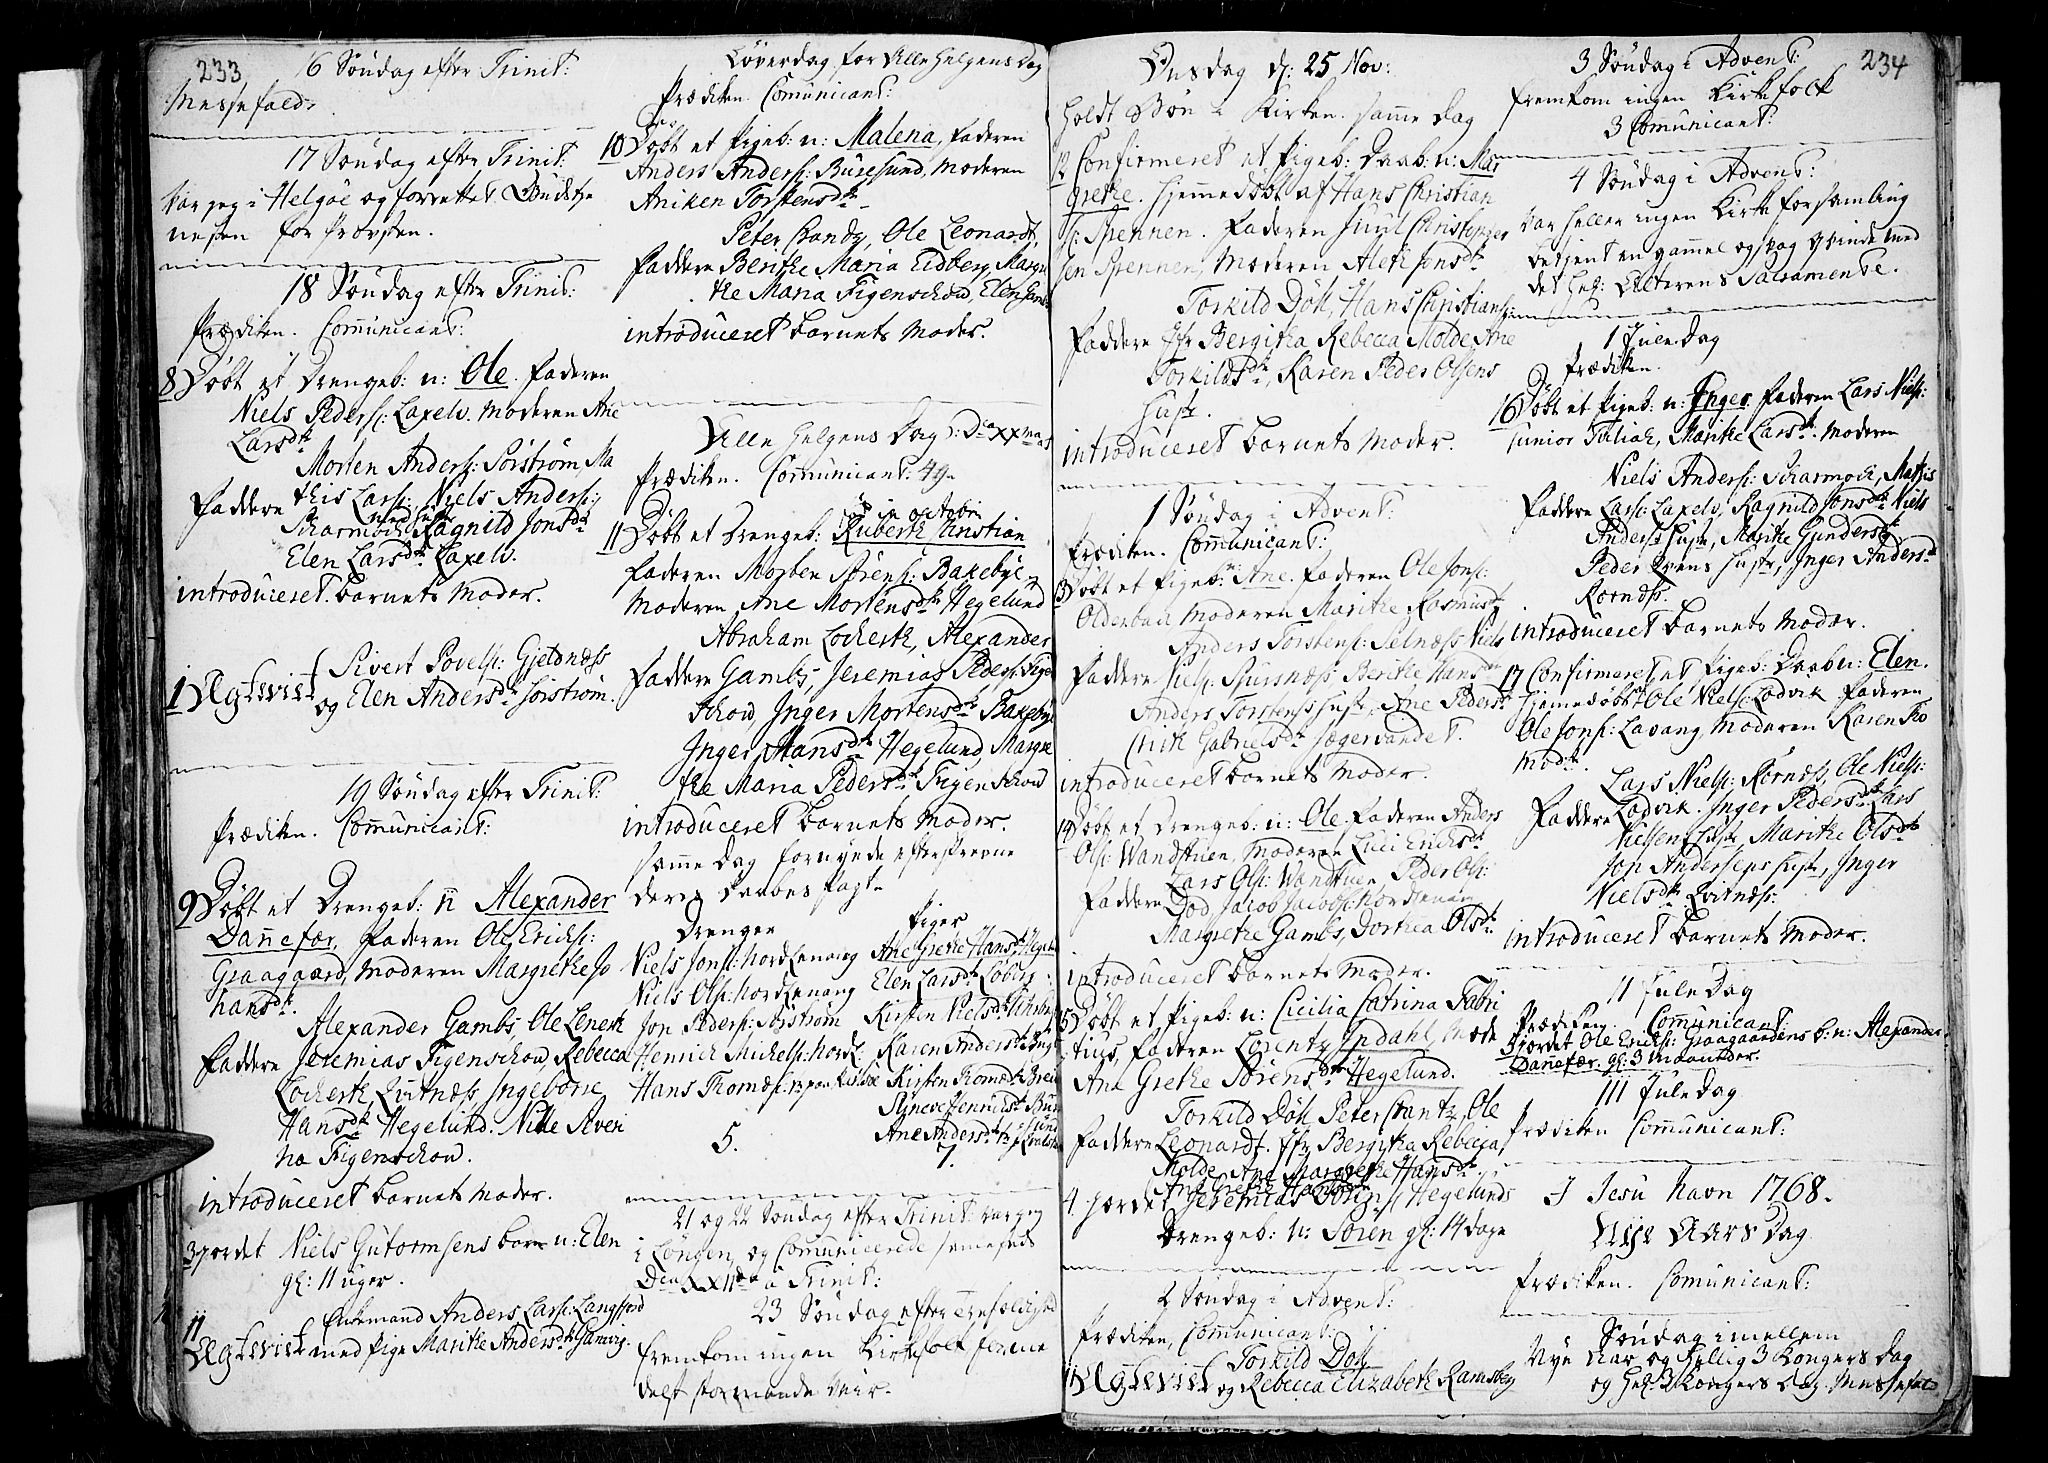 233
16 Söndag efter Trinit:
Messefald.
17 Söndag efter Trinit:
var jeg i Helgöe og forrettet Gudstje
nesten for Provsten.
18 Söndag efter Trinit:
Prædiken. Communicant:
8 Döbt et Drengeb: n: Ole. Faderen
Niels Peders: Laxelv. Moderen Ane
Larsdtr
Morten Anders: Sörström, Ma
Faddere this Lars: Niels Anders:
Scharmoch Ragnild Jonsdtr
Elen Larsdtr Laxelv.
introduceret barnets Moder.
1 Ægteviet Sivert Povels: Gjeldnæss
og Elen Andersdtr Sörström.
19 Söndag efter Trinit:
Prædiken. Communicant:
9 Döbt et Drengeb: n Alexander
Dannefær, Faderen Ole Ericks:
Graagaard, Moderen Margrethe Jo
hansdtr.
Alexander Gambs, Ole Lenerth
Faddere Jeremias Figenschow, Rebecca
Locherth, Qvitnæss, Ingeborre
Hansdtr Hegelund. Nille Severi
na Figenschow.
introduceret barnets Moder.
3 jordet Niels Gutormsens barn n: Elen
gl: 11 uger.
11 Enkemand Anders Lars: Langfjord
Ægteviet med Pige Marithe Andersdtr Gamvig.
Löverdag for Alle Helgens Dag
Prædiken. Communicant:
10 Döbt et Pigeb: n: Malena, Faderen
Anders Anders: Buresund, Moderen
Aniken Torstensdtr
Peter Crandz, Ole Leonardt,
Faddere Berithe Maria Eidberg, Margre
the Maria Figenschow, Elen
introduceret barnets Moder.
Alle Helgens Dag
Prædiken. Communicant: 49.
in octobri
11 Döbt et Drengeb: Ruberth Christian
Faderen Morten Sörens: Bakebye,
Moderen Ane Mortensdtr Hegelund
Abraham Locherth, Alexander
Faddere Gambs, Jeremias Peders: Figen
schow, Inger Mortensdtr Bakebye
Inger Hansdtr Hegelund, Margre
the Maria Pedersdtr Figenschow
introduceret barnets Moder.
samme Dag fornyede efterskrevne
deres Daabes Pagt.
Drenge
Niels Jons: Nordlenang
Niels Ols: Nordlenang
Jon Peders: Sörström
Henrich Michels: Nordl:
Hans Thomæs:
5.
Piger
Ane Grethe Hansdtr Hegelu
Elen Larsdtr Loberg
Kirsten Nielsdtr
Karen Andersdtr
Kirsten Thomædtr
Ane Andersdtr
7.
21 og 22 Söndag efter Trinit: var jeg
i Löngen, og Communicerede sammesteds
Den XXIIda à Trinit:
23 Söndag efter Trefoldighed
fremkom ingen Kirkefolk formedelst stormende Veir.
Onsdag d: 25 Nov:
holdt Bön i Kirken. samme Dag
12 Confirmeret et Pigeb: Daab: n: Mar
grethe. Hjemmedöbt af Hans Christian
s: Spennen. Faderen Juul Christopher
sen Spennen, Moderen Aleth Jonsdtr
Torkild Döll, Hans Christians:
Faddere Jfr Bergitha Rebecca Molde, Ane
Torkildsdtr, Karen Peder Olsens
Hustr.
introduceret barnets Moder.
1 Söndag i Advent:
Prædiken. Communicant:
13 Döbt et Pigeb: n: Ane. Faderen Ole Jons:
Olderbak Moderen Marithe Rasmusdtr
Anders Torstens: Selnæss Niels
Faddere Niels: Spursnæss, Berithe Hansdtr
Anders Torstenss Hustr, Ane Pedersdtr
Gabrielsdtr Jægervandet.
introduceret barnets Moder.
14 Döbt et Drengeb: n: Ole. Faderen Anders
Ols: Wandstuen, Moderen Luci Ericksdtr
Lars Ols: Wandstuen Peder Ols:
Faddere Dod, Jacob Jacobs: Nordlenang
Margrethe Gambs, Dorthea Olsdtr.
introduceret barnets Moder.
15 Döbt et Pigeb: n: Cicilia Catrina Fabri
tius, Faderen Lorentz Yndahl, Mode
Ane Grethe Sörensdtr Hegelund.
Torkild Döll Peter Crantz, Ole
Faddere Leonardt. Jfr Bergitha Rebecca
Molde, Ane Margrethe Hansdtr
4. jordet Jeremias Hegelunds
Drengeb: n: Sören gl: 14 dage
2 Söndag i Advent:
Prædiken, Communicant:
Ægteviet Torkild Döll
og Rebecca Elizabeth Ramsberg
3 Söndag i Advent:
234
fremkom ingen Kirkefolk
3 Communicant:
4 Söndag i Advent:
var heller ingen Kirkeforsamling
betjent en gammel og svag Qvinde med
det Hel: Alterens Sacramente.
1 Jule Dag
Prædiken.
16 Döbt et Pigeb: n: Inger. Faderen Lars Niels:
junior Marithe Larsdtr. Moderen
Niels Anders: Scharmoch, Mathis
Faddere Lars: Laxelv, Ragnild Jonsdtr Niels
Anderss Hustr, Marithe Gundersdtr
Peder Hustr, Inger Andersdtr
Kornæs.
introduceret barnets Moder.
17 Confirmeret et Pigeb: Daab n: Elen.
Hjemmedöbt af Ole Niels: Lodvik Faderen
Ole Jons: Lavang Moderen Karen Tho
mædtr.
Lars Niels: Kornæss, Ole Niels:
Faddere Lodvik. Inger Pedersdtr Lars
Nielsens Hustr Marithe Olsdtr
Jon Andersens Hustr, Inger
Nielsdtr Qvitnæs:
introduceret barnets Moder.
11 Jule Dag
Prædiken. Communicant
5 jordet Ole Ericks: Graagaardens b: n: Alexander
Dannefær. gl: 3 maaneder.
111 Jule Dag
Prædiken Communicant:
I Jesu Navn 1768.
Nye Aars Dag
Prædiken. Communicant:
Söndag imellem
Nye Aar og Hellig 3 Kongers Dag
og Hel: 3 Kongers Dag. Messefald